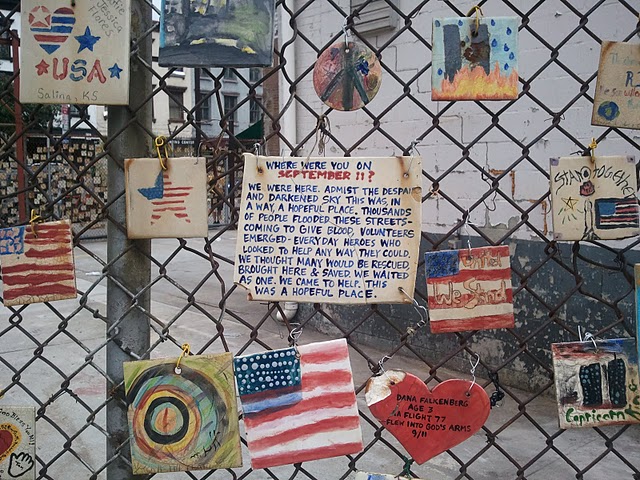 Jessica
Flores
USA
Salina, KS
WHERE WERE YOU ON
SEPTEMBER 11?
WE WERE HERE. ADMIST THE DESPAIR
AND DARKENED SKY THIS WAS, IN
A WAY, A HOPEFUL PLACE. THOUSANDS
OF PEOPLE FLOODED THESE STREETS.
COMING TO GIVE BLOOD. VOLUNTEERS
EMERGED- EVERYDAY HEROES WHO
LOOKED TO HELP ANY WAY THEY COULD.
WE THOUGHT MANY WOULD BE RESCUED,
BROUGHT HERE & SAVED. WE WAITED
AS ONE. WE CAME TO HELP. THIS
WAS A HOPEFUL PLACE.
STAND TOGETHER
United
We Stand
DANA FALKENBERG
AGE 3
AA FLIGHT 77
FLEW INTO GOD'S ARMS
9/11